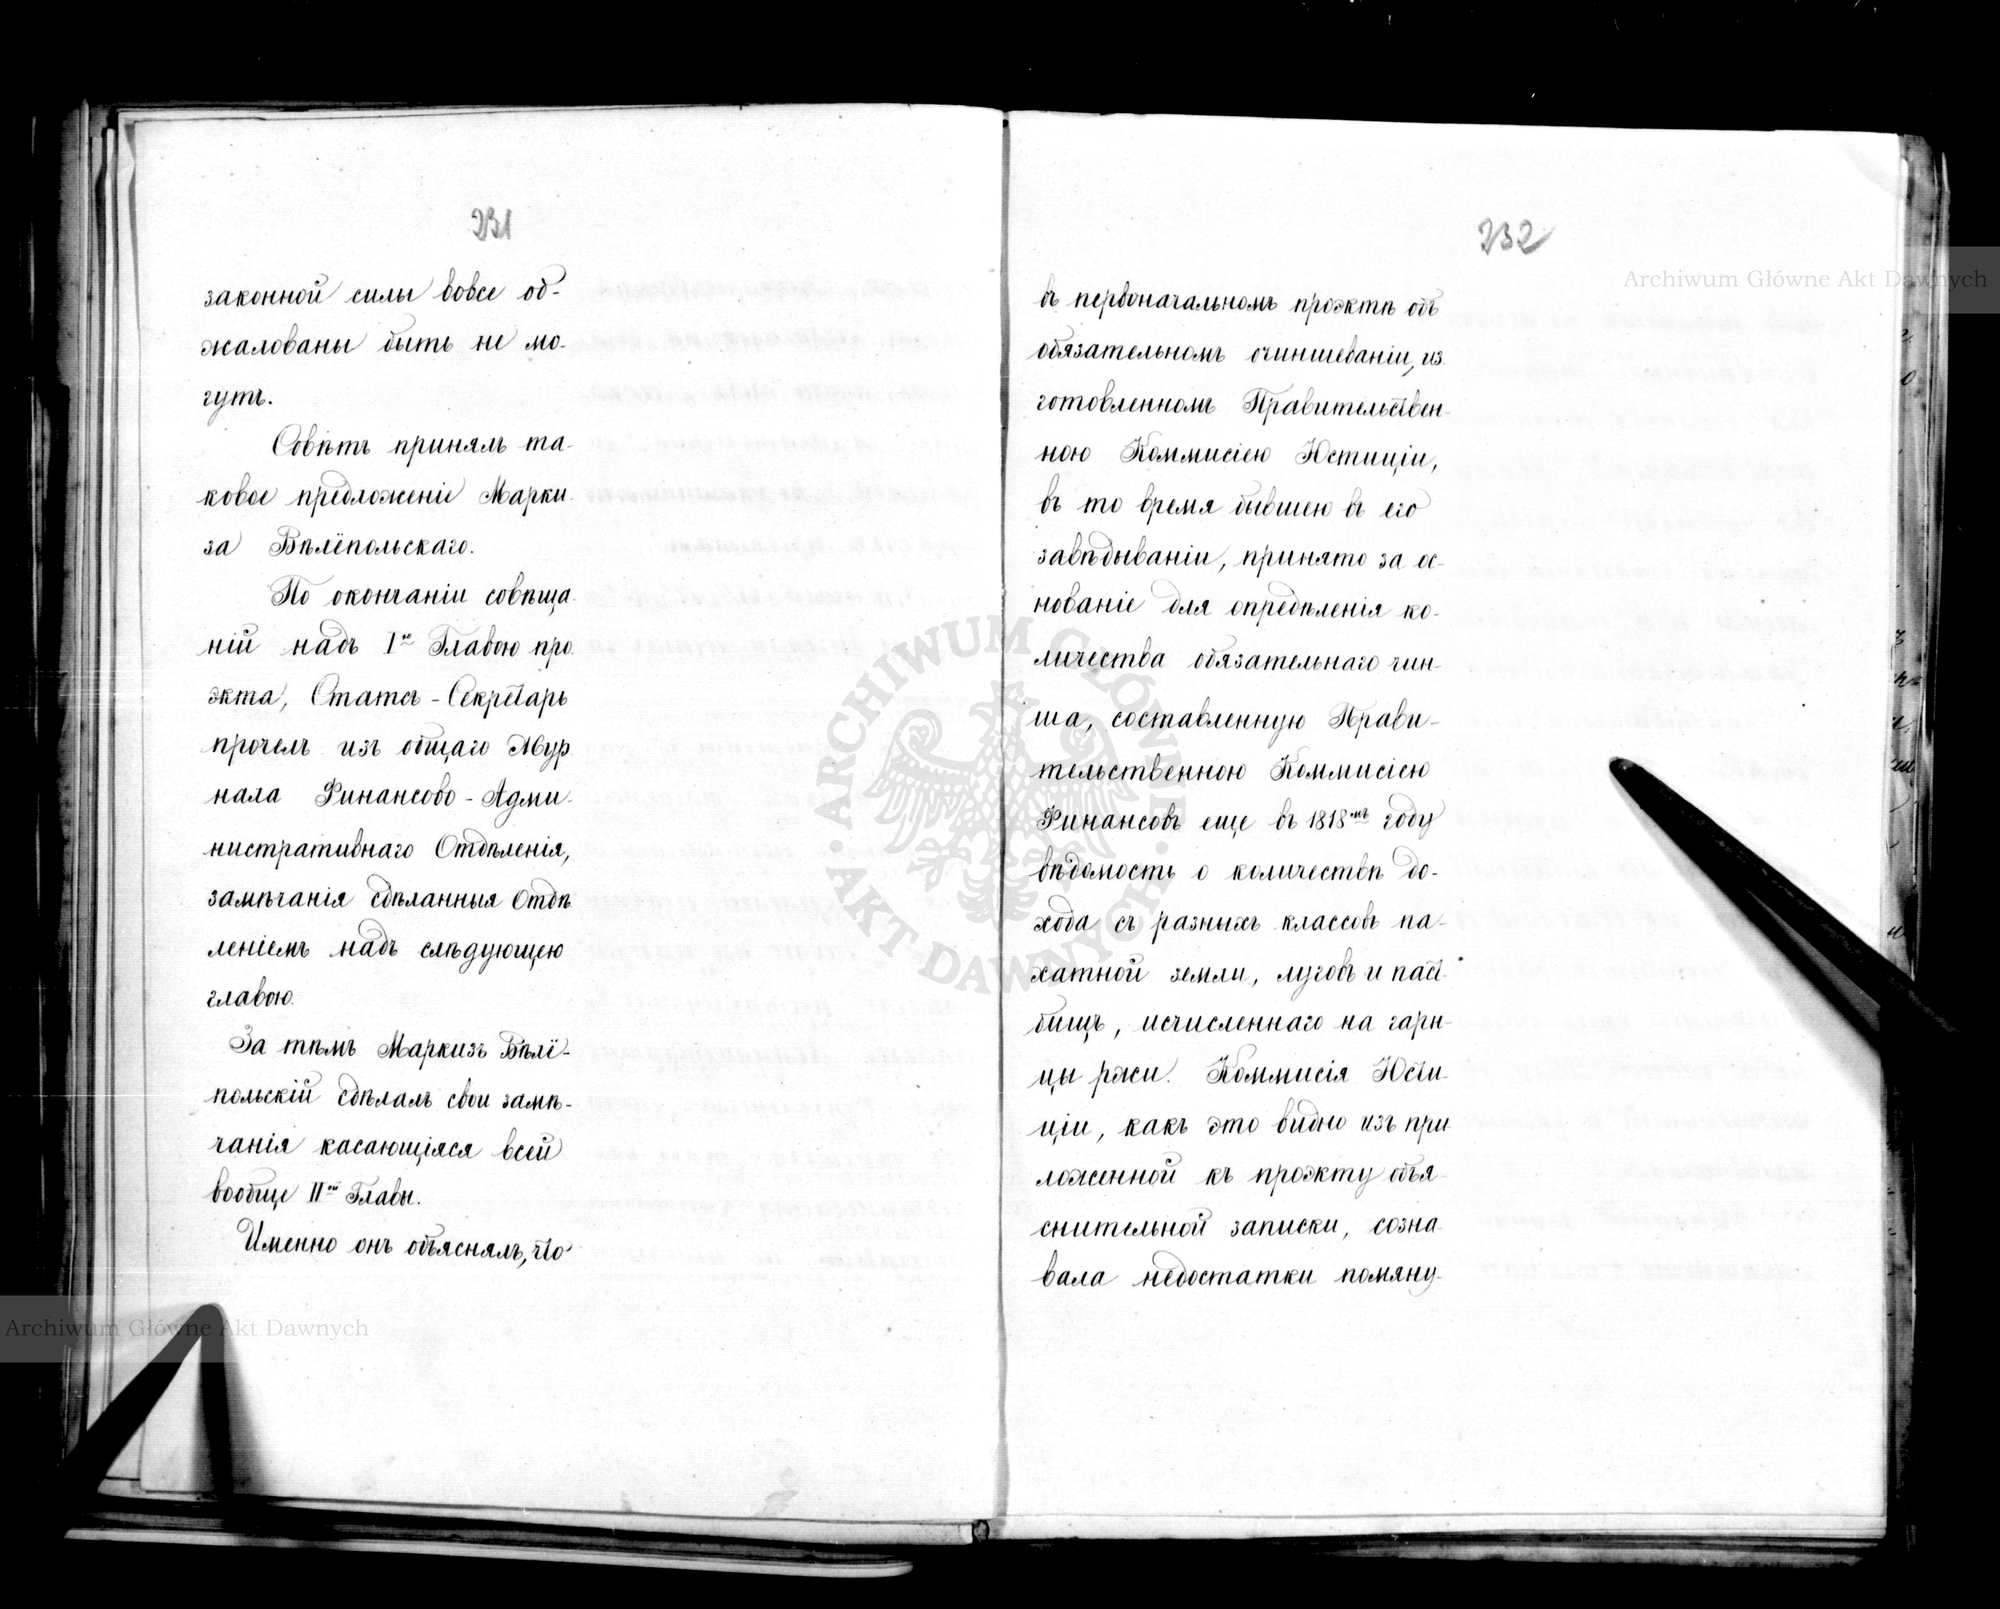 231
законной силы вовсе об-
жалованы быть не мо-
гутъ.
Совѣтъ принялъ та-
ковое предложеніе Марки-
за Вѣлёпольскаго.
По окончаніи совѣща-
ній надъ Iю Главою про-
экта, Статсъ-Секретарь
прочелъ изъ общаго Жур-
нала Финансово-Адми-
нистративнаго Отдѣленія,
замѣчанія сдѣланныя Отдѣ-
леніемъ надъ слѣдующею
главою.
За тѣмъ Маркизъ Вѣлё-
польскій сдѣлалъ свои замѣ-
чанія касающіяся всей
вообще IIой Главы.
Именно онъ объяснялъ, что
232
въ первоначальномъ проэктѣ объ
обязательномъ очиншеваніи, из-
готовленномъ Правительствен-
ною Коммисіею Юстиціи,
въ то время бывшею въ его
завѣдываніи, принято за ос-
нованіе для опредѣленія ко-
личества обязательнаго чин-
ша, составленную Прави-
тельственною Коммисіею
Финансовъ еще въ 1818мъ году
вѣдомость о количествѣ до-
хода съ разныхъ классовъ па-
хатной земли, луговъ и паст-
бищъ, исчисленнаго на гарн-
цы ржи. Коммисія Юсти-
ціи, какъ это видно изъ при-
ложенной къ проэкту объя-
снительной записки, созна-
вала недостатки помяну-
Archiwum Główne Akt Dawnych
Archiwum Główne Akt Dawnych
ARCHIWUM GŁÓWNE · AKT DAWNYCH ·